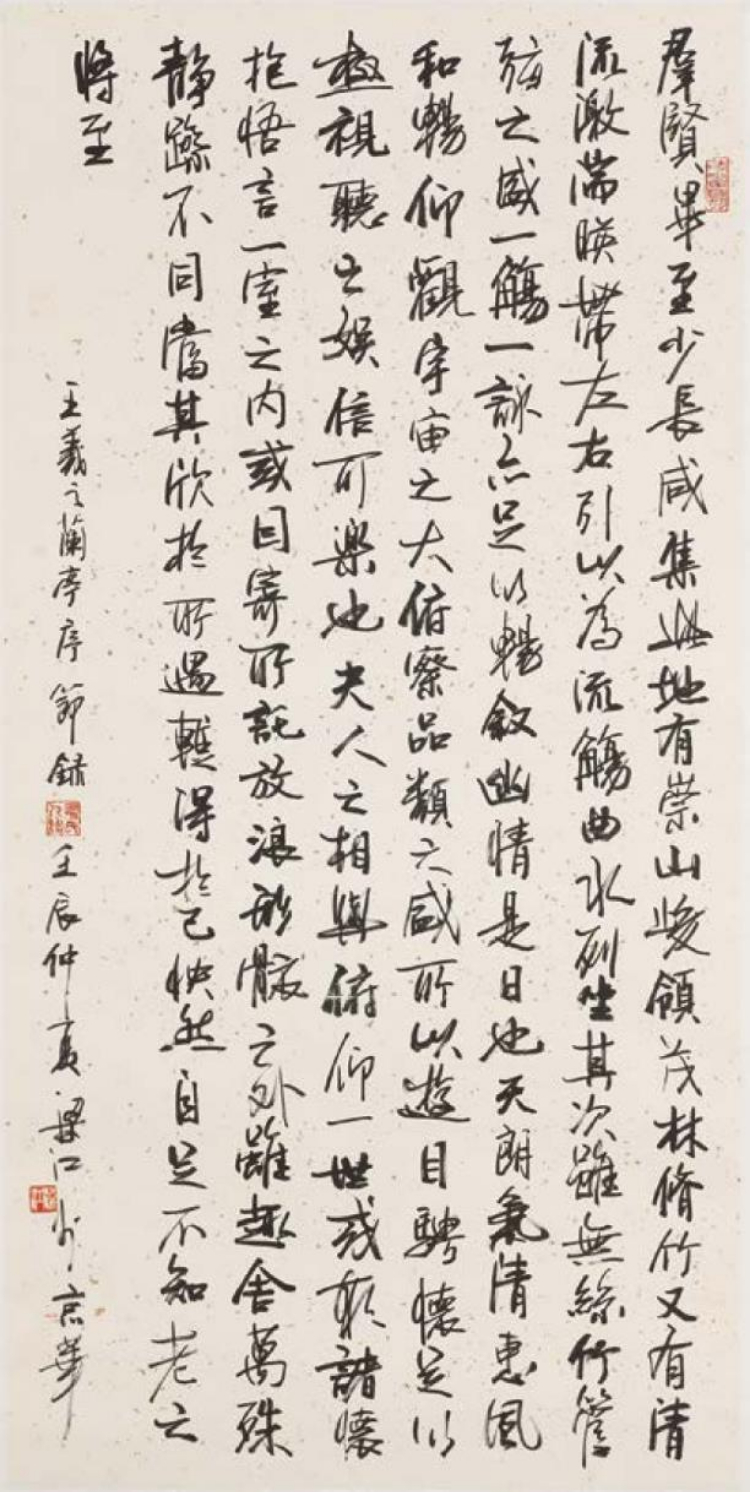 羣賢畢至少長咸集此地有崇山峻領茂林脩竹又有清
流激湍暎帶左右引以為流觴曲水列坐其次雖無絲竹管
弦之盛一觴一詠亦足以暢敘幽情是日也天朗氣清惠風
和暢仰觀宇宙之大俯察品類之盛所以遊目騁懷足以
極視聽之娛信可樂也夫人之相與俯仰一世或取諸懷
抱悟言一室之內或因寄所託放浪形骸之外雖趣舍萬殊
靜躁不同當其欣於所遇暫得於己怏然自足不知老之
將至
王羲之蘭亭序節錄 壬辰仲夏梁江於京華